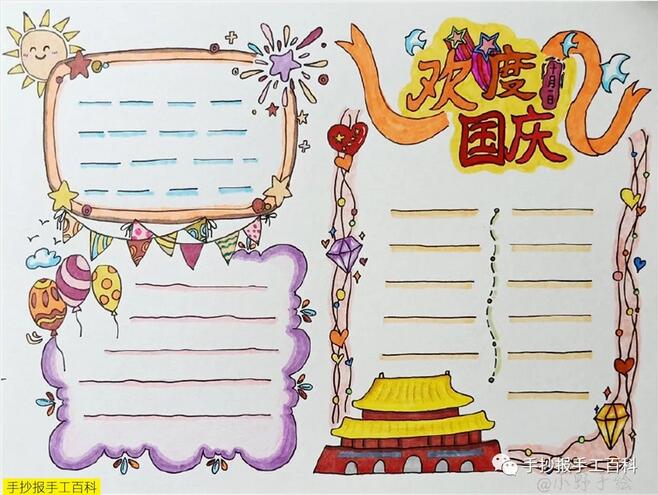 欢度
十月一日
国庆
手抄报手工百科
手抄报手工百科
@小野手绘